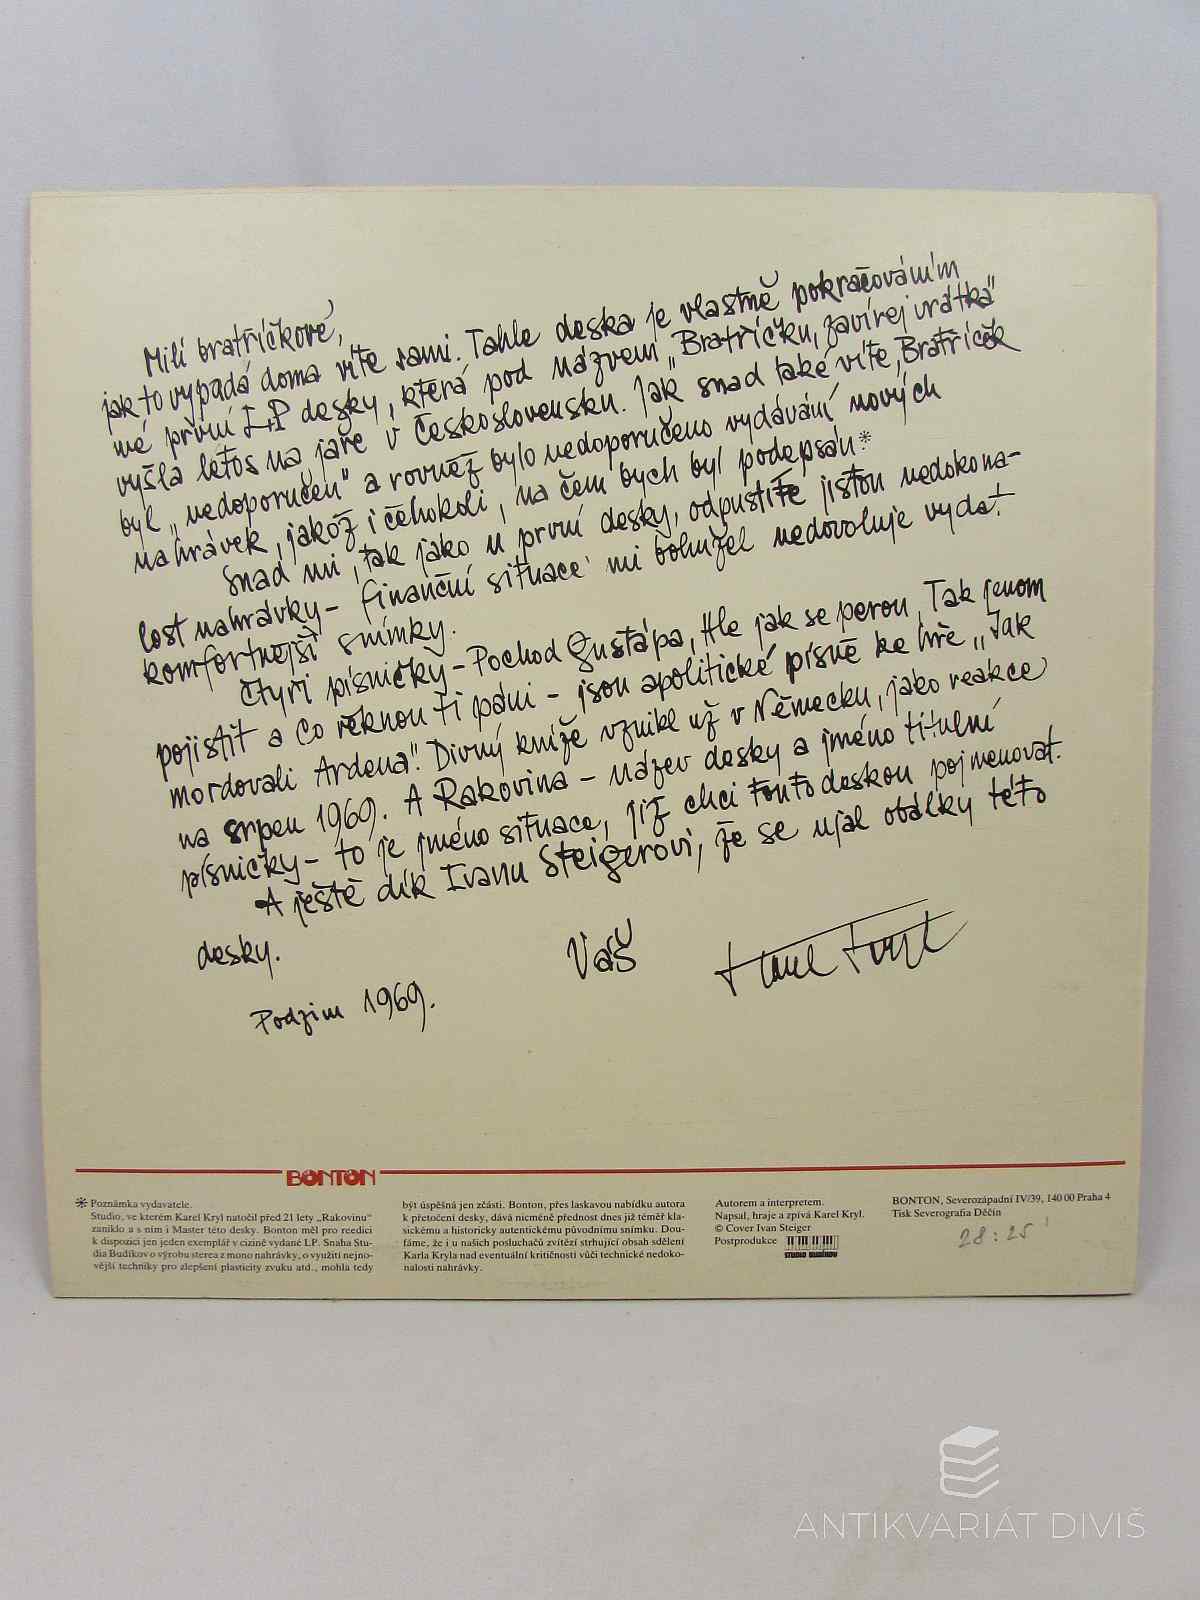 Milí bratříčkové,
jak to vypadá doma víte sami. Tahle deska je vlastně pokračováním
mé první LP desky, která pod názvem „Bratříčku, zavírej vrátka“
vyšla letos na jaře v Československu. Jak snad také víte, Bratříček
byl „nedoporučen“ a rovněž bylo nedoporučeno vydávání nových
nahrávek, jakož i čehokoli, na čem bych byl podepsán.*
Snad mi, tak jako u první desky, odpustíte jistou nedokona-
lost nahrávky – finanční situace mi bohužel nedovoluje vydat
komfortnější snímky.
Čtyři písničky – Pochod Gustápa, Hle jak se perou, Tak jenom
pojistit a Co řeknou ti páni – jsou apolitické písně ke hře „Jak
mordovali Ardena“. Divný kníže vznikl už v Německu, jako reakce
na srpen 1969. A Rakovina – název desky a jméno titulní
písničky – to je jméno situace, jíž chci touto deskou pojmenovat.
A ještě dík Ivanu Steigerovi, že se ujal obálky této
desky.
Váš Karel Kryl
Podzim 1969.
BONTON
* Poznámka vydavatele.
Studio, ve kterém Karel Kryl natočil před 21 lety „Rakovinu“
zaniklo a s ním i Master této desky. Bonton měl pro reedici
k dispozici jen jeden exemplář v cizině vydané LP. Snaha Stu-
dia Budíkov o výrobu sterea z mono nahrávky, o využití nejno-
vější techniky pro zlepšení plasticity zvuku atd., mohla tedy
být úspěšná jen zčásti. Bonton, přes laskavou nabídku autora
k přetočení desky, dává nicméně přednost dnes již téměř kla-
sickému a historicky autentickému původnímu snímku. Dou-
fáme, že i u našich posluchačů zvítězí strhující obsah sdělení
Karla Kryla nad eventuální kritičností vůči technické nedoko-
nalosti nahrávky.
Autorem a interpretem.
Napsal, hraje a zpívá Karel Kryl.
© Cover Ivan Steiger
Postprodukce
STUDIO BUDÍKOV
BONTON, Severozápadní IV/39, 140 00 Praha 4
Tisk Severografia Děčín
28:25'
ANTIKVARIÁT DIVIŠ